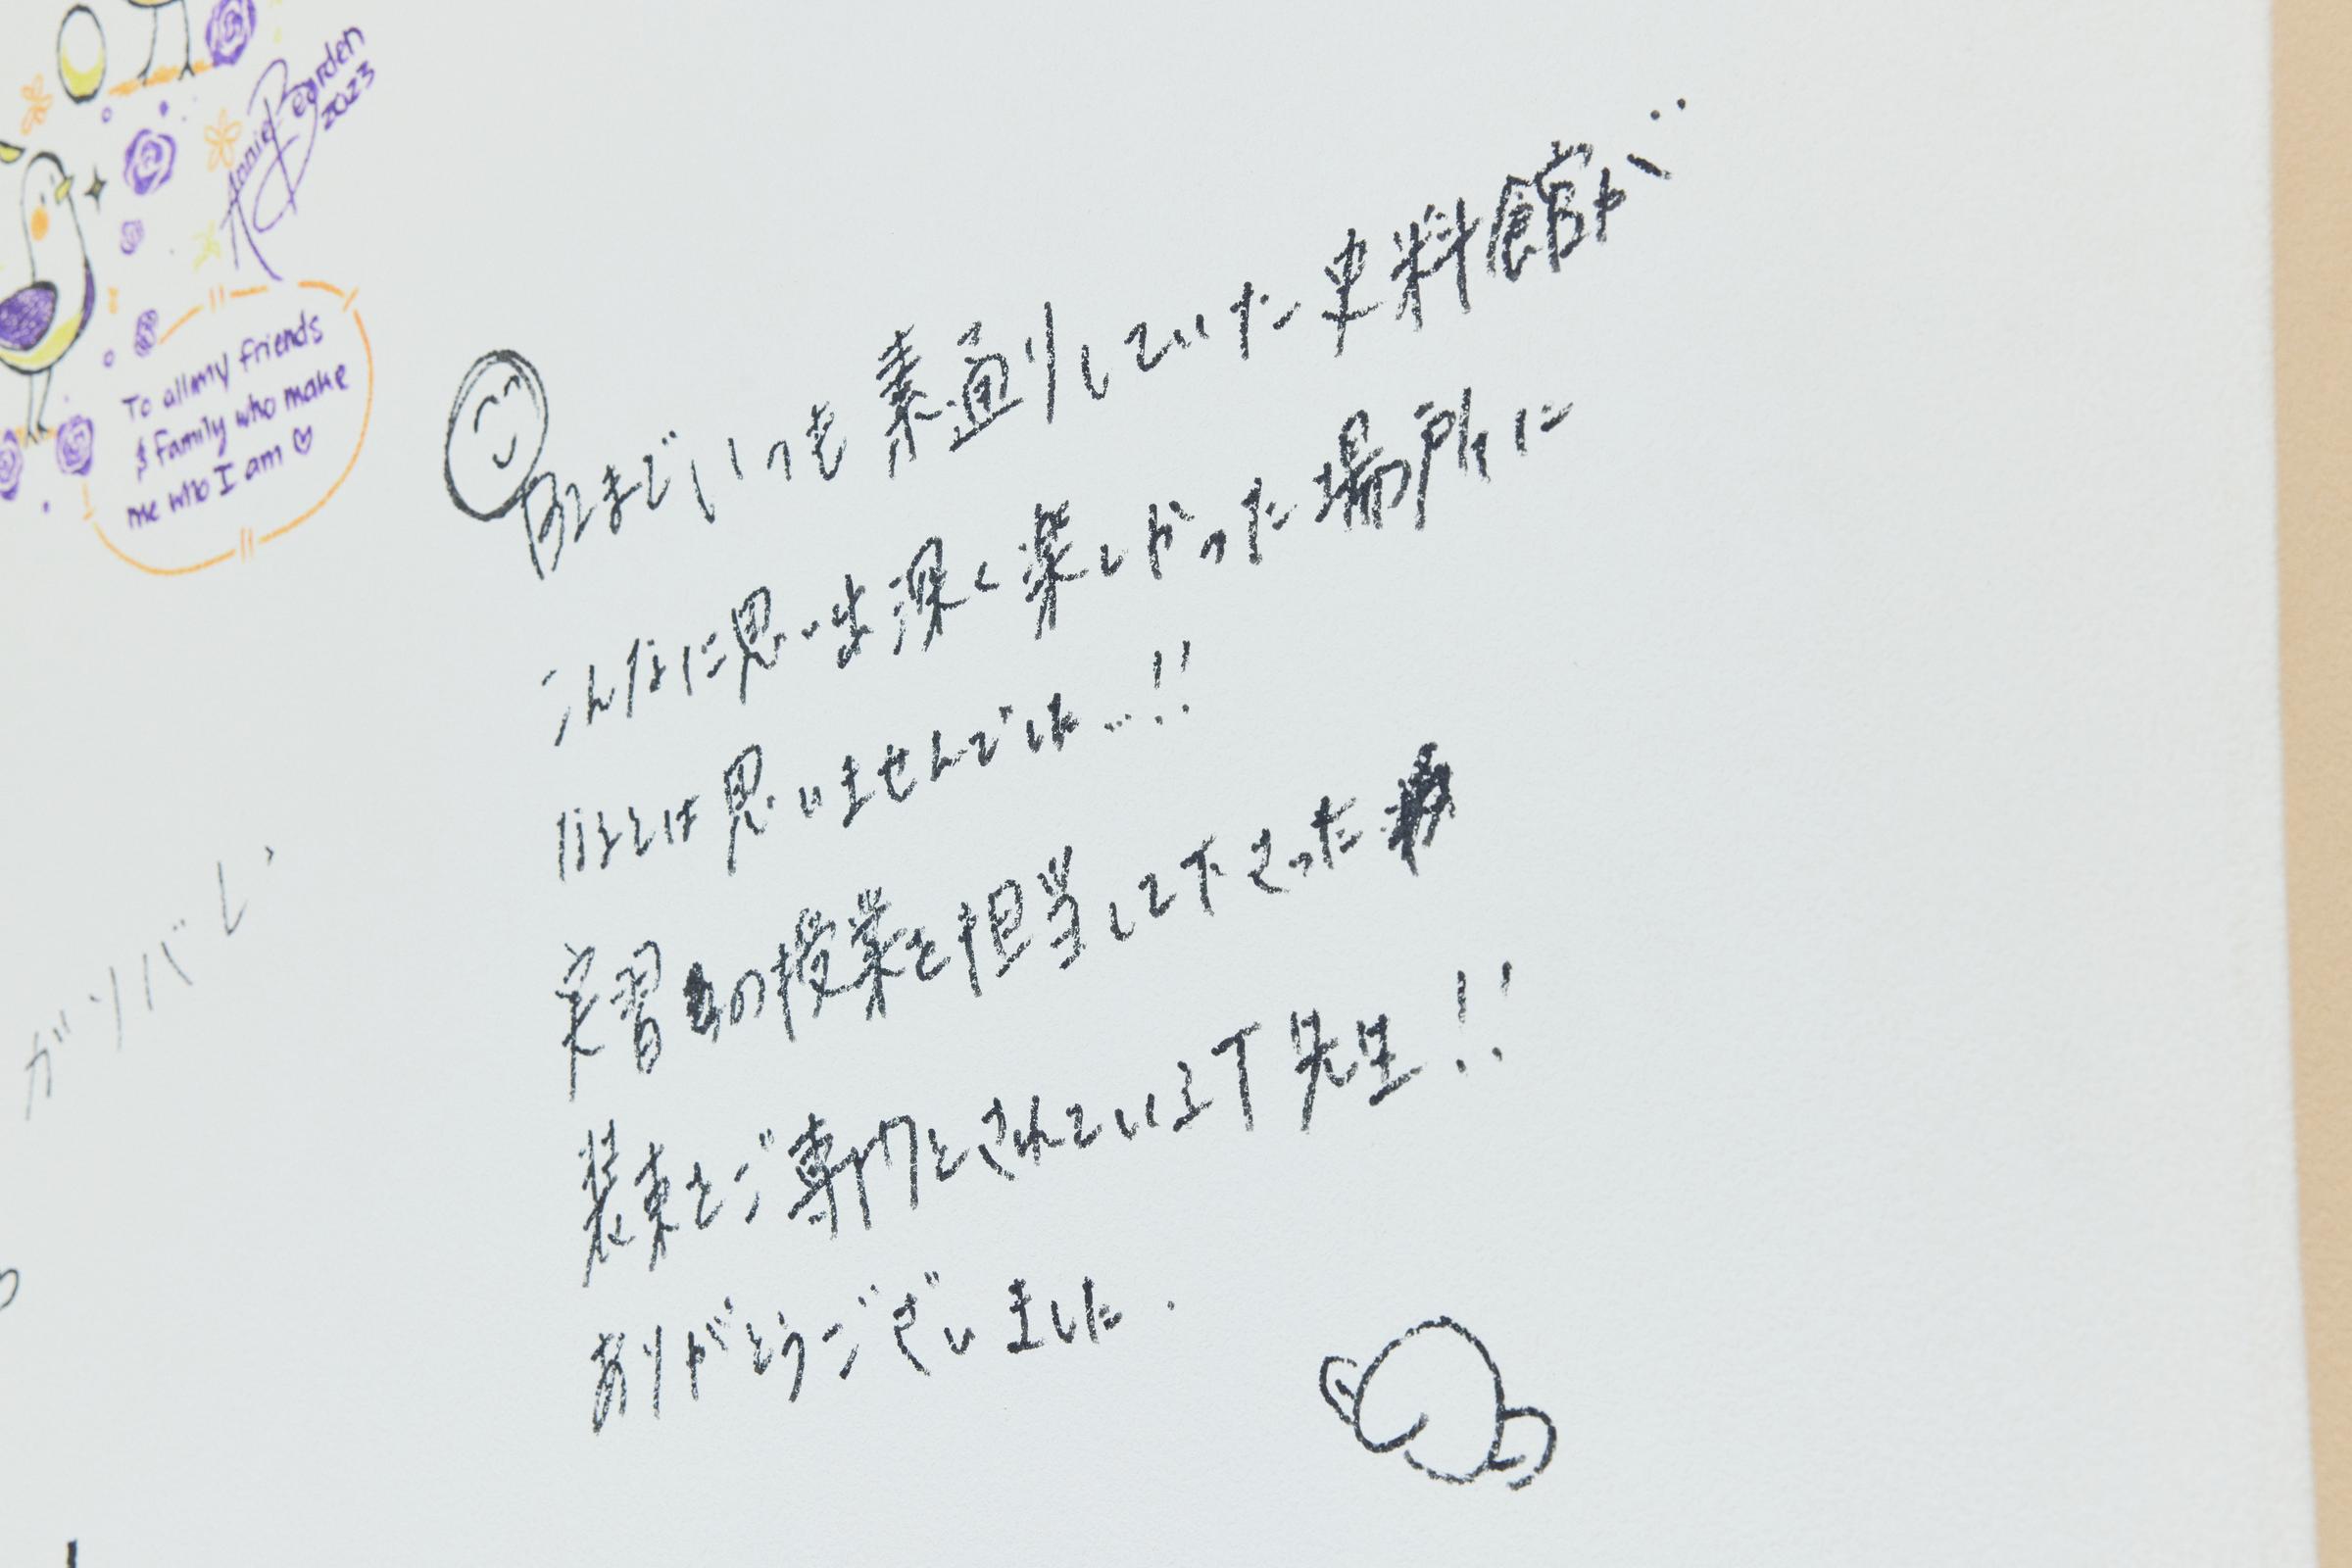 Annie Bearden
2023
To all my friends
& family who make
me who I am ♡
ガリバレい
いつも素通りしていた史料館が…
こんなに思い出深く楽しかった場所に
なるとは思いませんでした…!!
実習の授業を担当して下さった
装束をご専門とされているT先生!!
ありがとうございました.